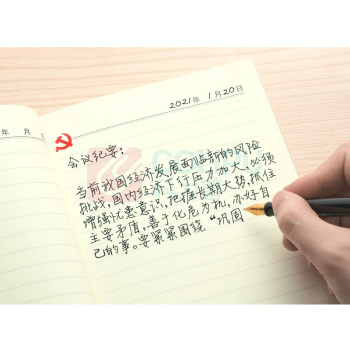 年 月
2021年 1月20日
会议纪要：
当前我国经济发展面临新的风险
挑战，国内经济下行压力加大，必须
增强忧患意识，把握长期大势，抓住
主要矛盾，善于化危为机，办好自
己的事。要紧紧围绕“巩固